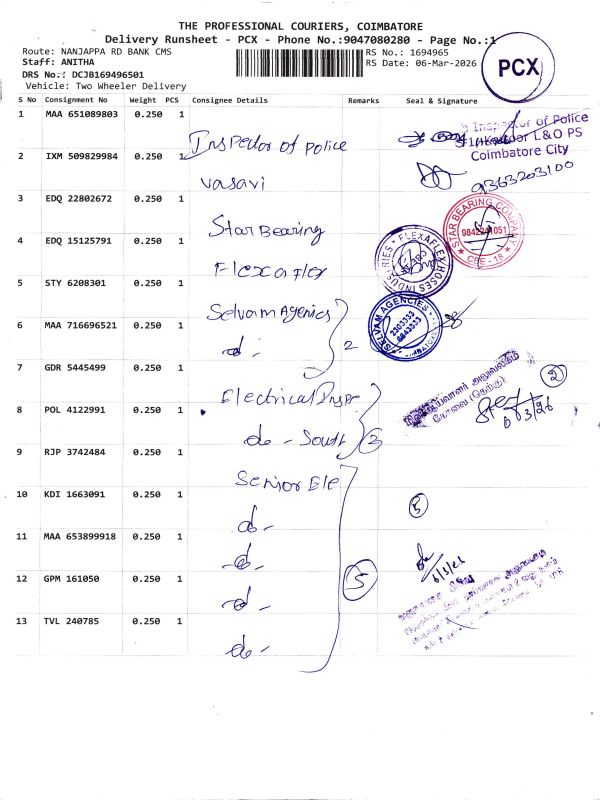 THE PROFESSIONAL COURIERS, COIMBATORE
Delivery Runsheet - PCX - Phone No.:9047080280 - Page No.:1
Route: NANJAPPA RD BANK CMS
RS No.: 1694965
Staff: ANITHA
RS Date: 06-Mar-2026
DRS No.: DCJB169496501
Vehicle: Two Wheeler Delivery
PCX
S No Consignment No Weight PCS Consignee Details Remarks Seal & Signature
1 MAA 651089803 0.250 1 Inspector of police
Inspector of Police
L&O PS
Coimbatore City
2 IXM 509829984 0.250 1 vasavi
9363203100
3 EDQ 22802672 0.250 1 Star Bearing
STAR BEARING COMPANY
9842241051
CBE - 18
4 EDQ 15125791 0.250 1 Flexaflex
FLEXAFLEX HOSES INDUSTRIES
5 STY 6208301 0.250 1 Selvam Agenics
SELVAM AGENCIES
2303333
6 MAA 716696521 0.250 1 do - 2
7 GDR 5445499 0.250 1 Electrical Inspr
கோவை (தெற்கு)
2
8 POL 4122991 0.250 1 do - South
9 RJP 3742484 0.250 1 Senior Ele
10 KDI 1663091 0.250 1 do -
5
11 MAA 653899918 0.250 1 do -
12 GPM 161050 0.250 1 do - 5
13 TVL 240785 0.250 1 do -